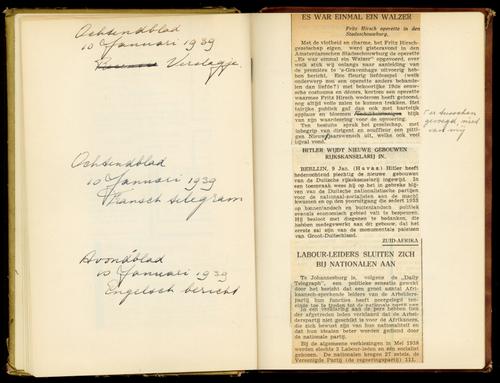 Ochtendblad
10 Januari 1939
Verslagje.
Ochtendblad
10 Januari 1939
Fransch telegram
Avondblad
10 Januari 1939
Engelsch bericht
ES WAR EINMAL EIN WALZER
Fritz Hirsch operette in den
Stadsschouwburg.
Met de vlotheid en charme, het Fritz Hirsch-
gezelschap eigen, werd gisteravond in den
Amsterdamschen Stadsschouwburg de operette
„Es war einmal ein Walzer" opgevoerd, over
welk stuk wij onlangs naar aanleiding van
de première te 's-Gravenhage uitvoerig heb-
ben bericht. Een fleurig liefdesspel (welk
onderwerp zou een operette anders behande-
len dan liefde?) met bekoorlijke 19de eeuw-
sche costuums en décors, kortom een operette
waarmee Fritz Hirsch wederom heeft getoond,
nog altijd volle zalen te kunnen trekken. Het
talrijke publiek gaf dan ook met hartelijk
applaus en bloemen blijk
van zijn waardeering voor de opvoering.
Ten besluite sprak het gezelschap, met
inbegrip van dirigent en souffleur een pitti-
gen Nieuwjaarswensch uit, welke ook veel
bijval vond.
er tusschen
gevoegd, niet
van mij
HITLER WIJDT NIEUWE GEBOUWEN
RIJKSKANSELARIJ IN.
BERLIJN, 9 Jan. (Havas) Hitler heeft
hedenochtend plechtig de nieuwe gebouwen
van de Duitsche rijkskanselarij ingewijd. In
een toespraak wees hij op het in gebreke blij-
ven van de Duitsche nationalistische partijen
voor de nationaal-socialisten aan de macht
kwamen en op den vooruitgang die sedert 1933
op binnenlandsch en buitenlandsch politiek
evenals economisch gebied valt te bespeuren.
Hij besloot met diegenen te bedanken, die
hebben medegewerkt aan dit gebouw, dat het
eerste zal zijn van de monumentale paleizen
van Groot-Duitschland.
ZUID-AFRIKA
LABOUR-LEIDERS SLUITEN ZICH
BIJ NATIONALEN AAN
Te Johannesburg is, volgens de „Daily
Telegraph", een politieke sensatie gewekt
door het bericht dat een groot aantal Afri-
kaansch-sprekende leiders van de Arbeiders-
partij hun functies heeft neergelegd ten-
einde toe te treden tot de nationale partij
In een verklaring aan de pers hebben tien
der afgetreden leiders verklaard dat de Arbei-
derspartij niet geschikt is voor de Afrikaners,
die zich bewust zijn van hun nationaliteit en
dat hun idealen beter worden gediend door
de nationale partij.
Bij de algemeene verkiezingen in Mei 1938
werden slechts 3 Labour-leden en één socialist
gekozen. De nationalen kregen 27 zetels, de
Vereenigde Partij (de regeeringspartij) 111.